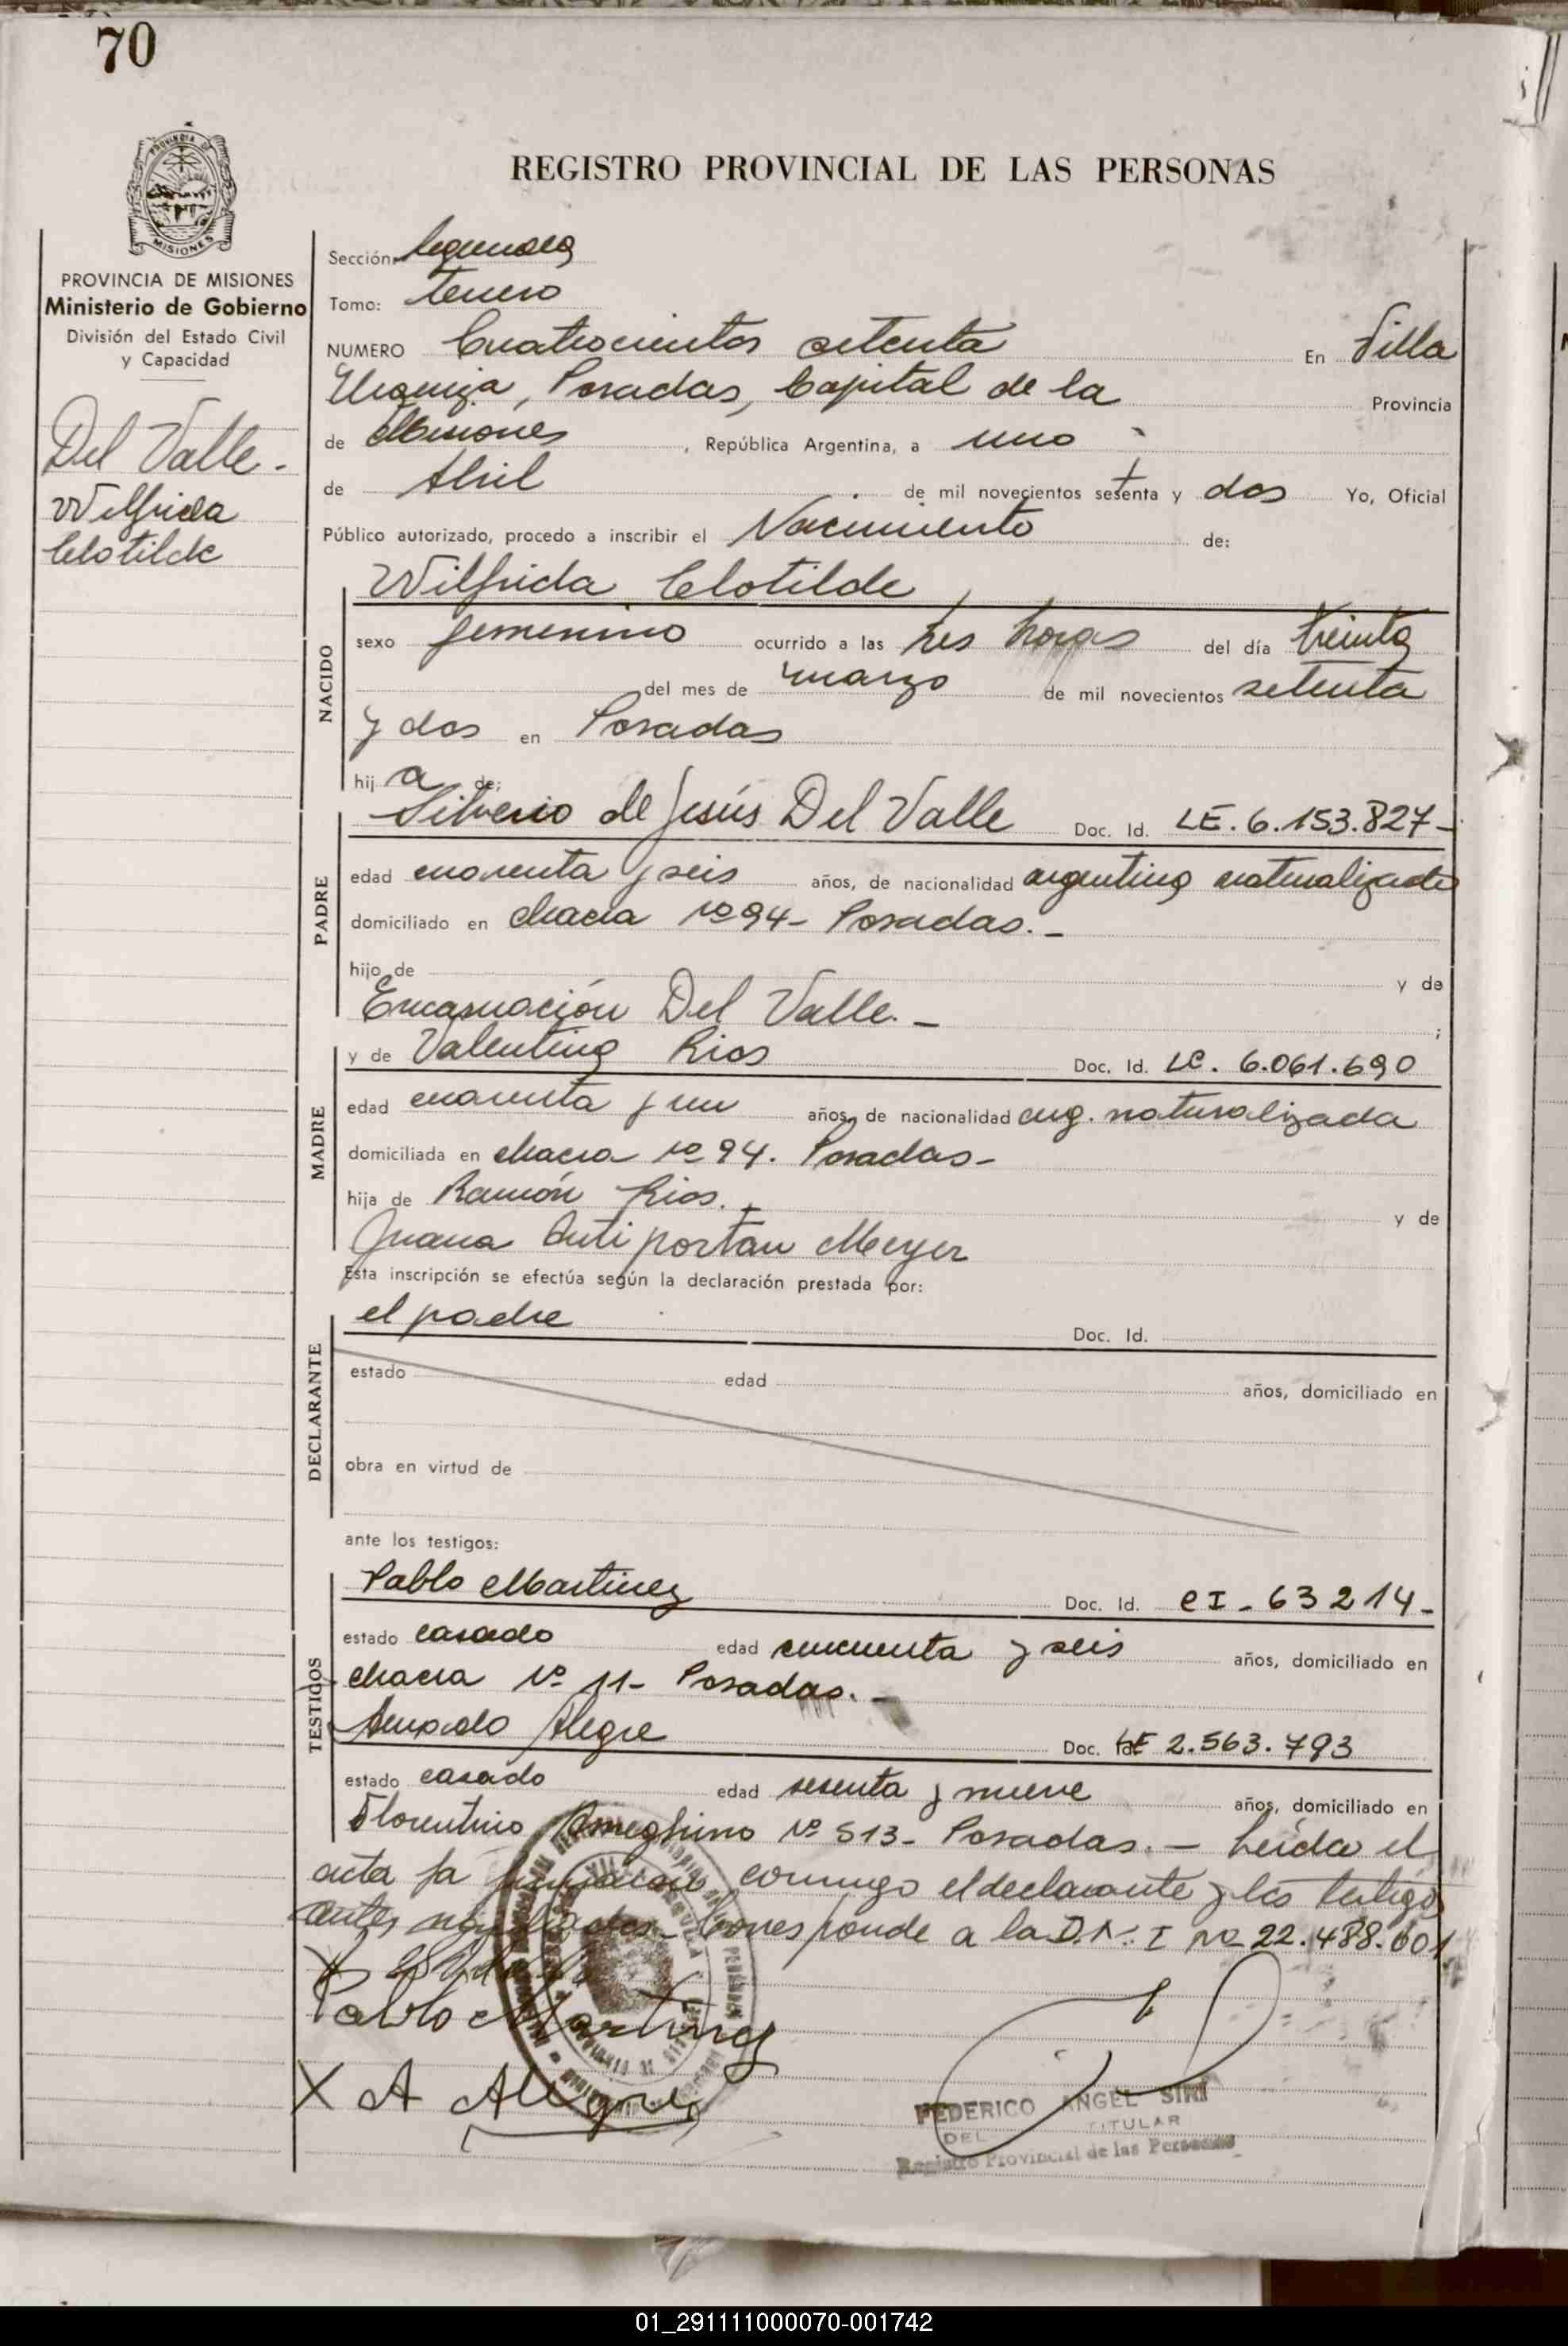 70
PROVINCIA DE
MISIONES
REGISTRO PROVINCIAL DE LAS PERSONAS
PROVINCIA DE MISIONES
Ministerio de Gobierno
División del Estado Civil
y Capacidad
Del Valle -
Wilfrida
Clotilde
Sección: Segunda
Tomo: Tercero
NUMERO Cuatrocientos setenta En Villa
Urquiza, Posadas, Capital de la Provincia
de Misiones, República Argentina, a uno -
de Abril de mil novecientos setenta y dos Yo, Oficial
Público autorizado, procedo a inscribir el Nacimiento de:
NACIDO
Wilfrida Clotilde
sexo femenino ocurrido a las tres horas del día treinta
del mes de marzo de mil novecientos setenta
y dos en Posadas
hij a de:
PADRE
Silverio de Jesús Del Valle Doc. Id. LE. 6.153.827-
edad cuarenta y seis años, de nacionalidad argentino naturalizado
domiciliado en chacra Nº 94- Posadas.-
hijo de y de
Encarnación Del Valle.- ;
MADRE
y de Valentina Rios Doc. Id. LC. 6.061.690
edad cuarenta y un años, de nacionalidad arg. naturalizada
domiciliada en chacra Nº 94. Posadas-
hija de Ramón Rios. y de
Juana Meyer
Esta inscripción se efectúa según la declaración prestada por:
DECLARANTE
el padre Doc. Id.
estado edad años, domiciliado en
obra en virtud de
ante los testigos:
TESTIGOS
Pablo Martinez Doc. Id. CI - 63214-
estado casado edad cincuenta y seis años, domiciliado en
chacra Nº 11- Posadas.-
Alegre Doc. LE 2.563.793
estado casado edad sesenta y nueve años, domiciliado en
Florentino Ameghino Nº 513- Posadas.- Leída el
acta la conmigo el declarante y los testigos
antes Corresponde a la D.N.I Nº 22.488.601
Pablo Martinez
X A Alegre
FEDERICO ANGEL SIRI
TITULAR
DEL
Registro Provincial de las Personas
01_291111000070-001742